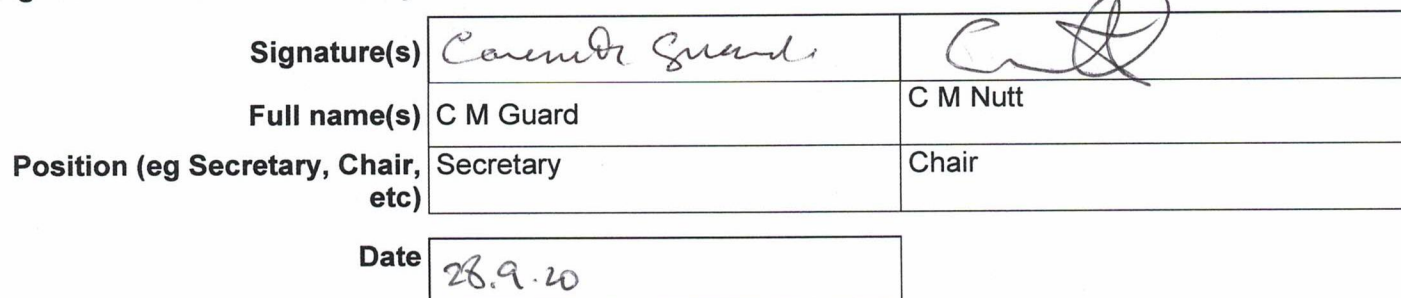 Signature(s) Guard
Full name(s) C M Guard C M Nutt
Position (eg Secretary, Chair, Secretary Chair
etc)
Date 28.9.20